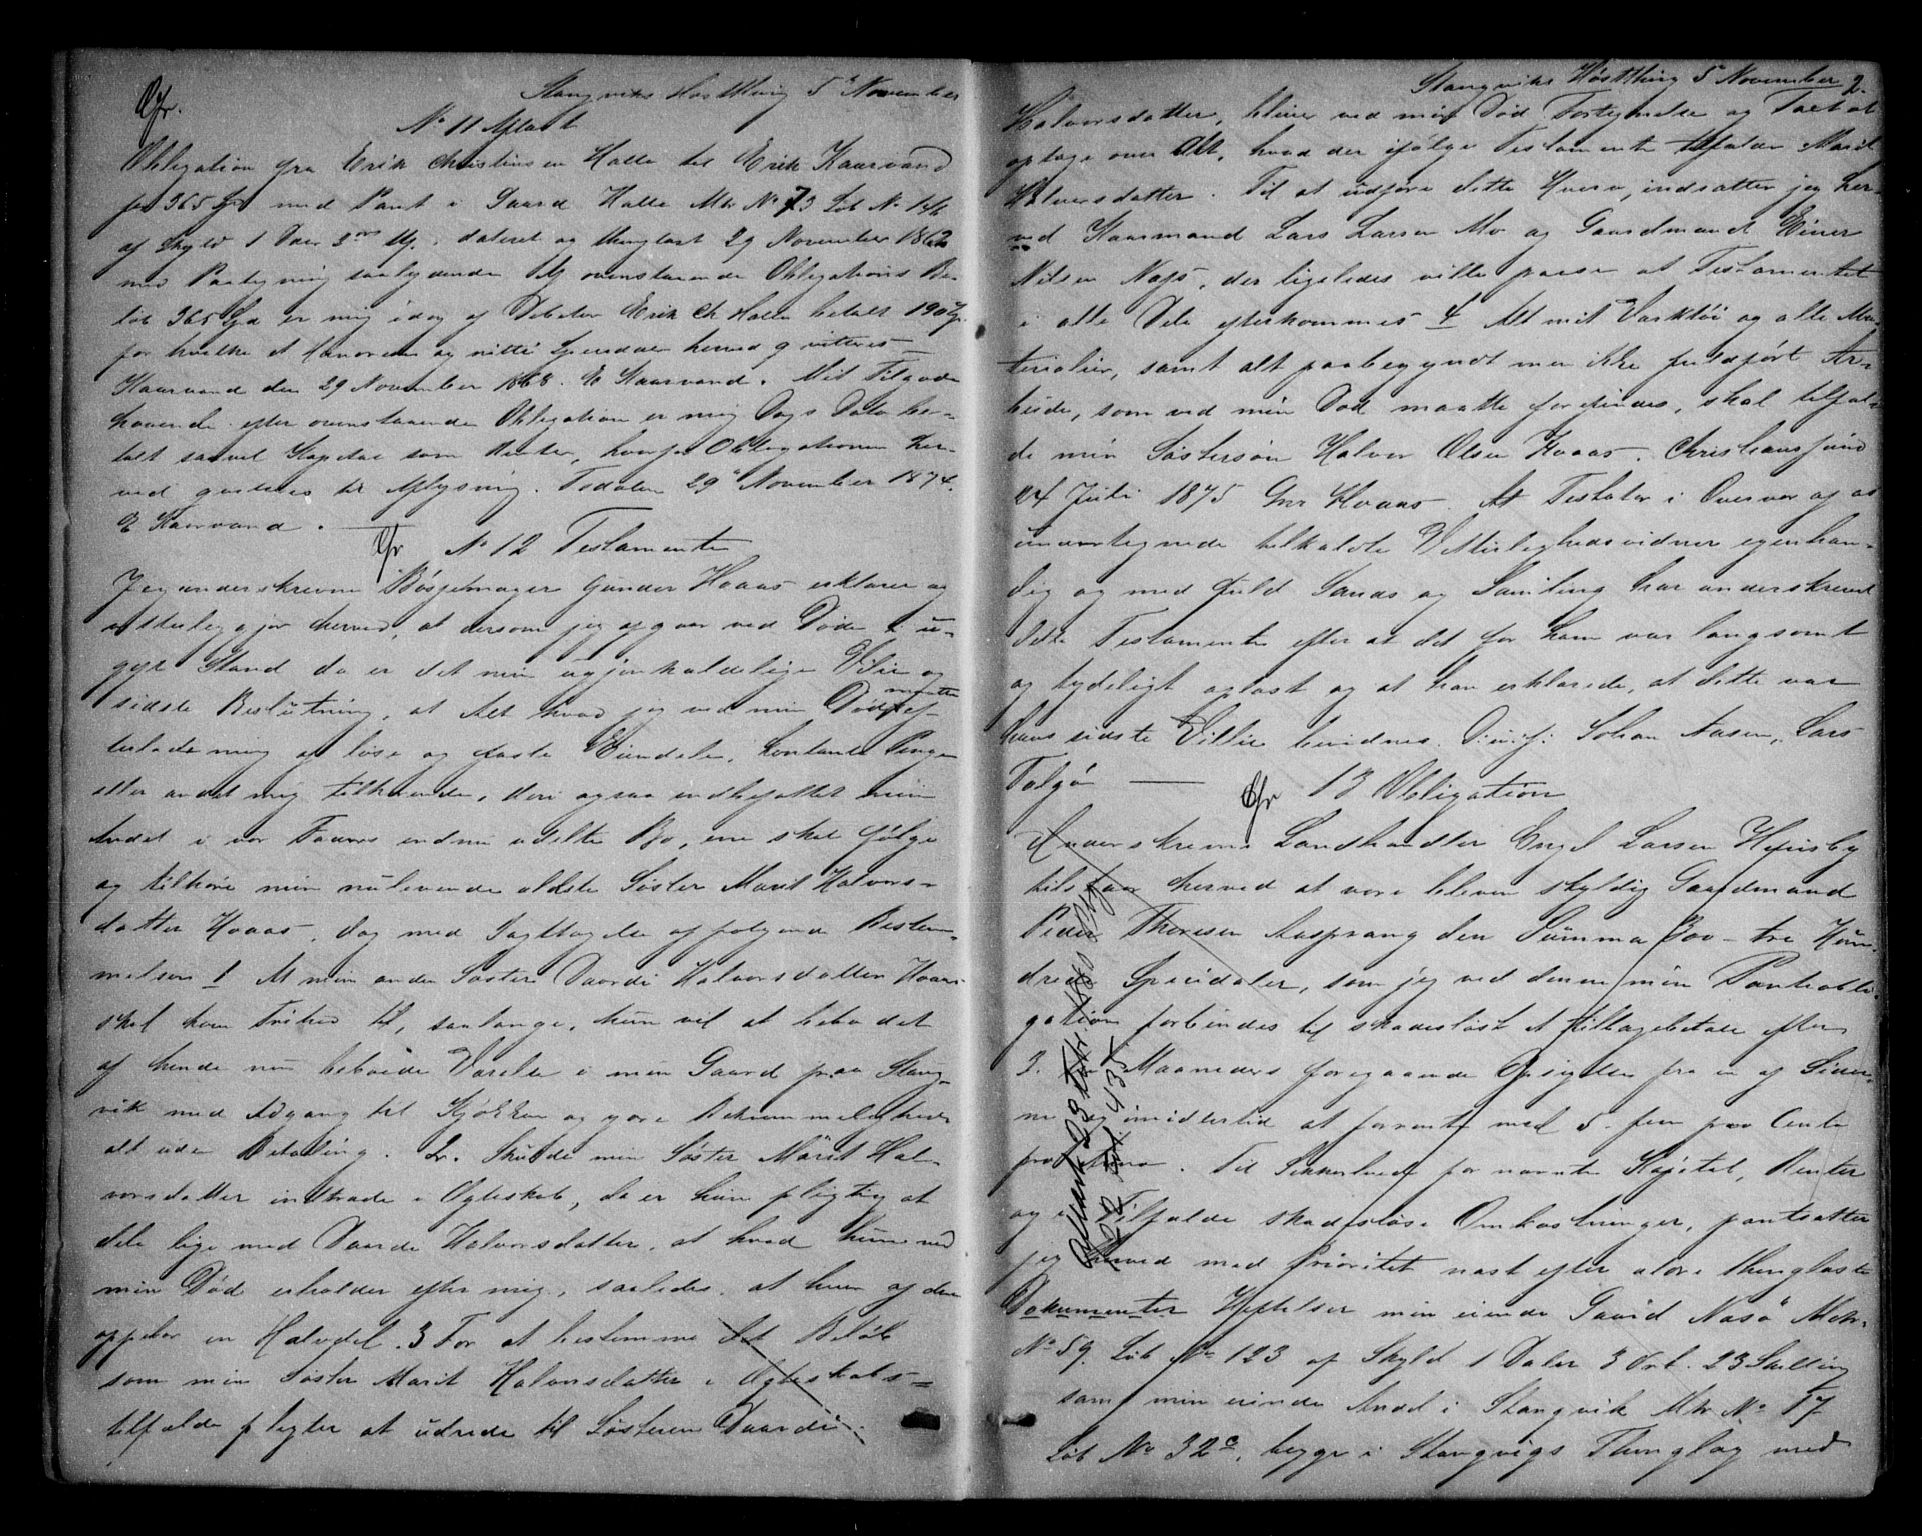 Stangviks Høstthing 5 November
Gfr.
No 11 Aflæst
Obligation fra Erik Christensen Halle til Erik Kaarvand
for 365 Spd med Pant i Gaard Halle Mtr No 73 Løb No
af Skyld 1 Daler dateret og thinglæst 29 November 1862
med Paategning saalydende: Af ovenstaaende Obligations Be-
løb 365 Spd er mig idag af Debitor Erik Ch Halle betalt 190 Spd.
for hvilke et hundrede og nitti Speciedaler herved qvitteres
Kaarvand den 29 November 1868. E Kaarvand. Mit Tilgode
havende efter ovenstaaende Obligation er mig Dags Dato be-
talt saavel Kapital som Renter, hvorfor Obligationen her-
ved qvitteres til Aflysning. Todalen 29 November 1874.
E Kaarvand.
Gfr No 12 Testamente
Jeg underskrevne Bøssemager Gunder Hoaas erklærer og
vitterliggjør herved, at dersom jeg afgaar ved Døden i u-
gift Stand da er det min ugjenkaldelige Villie og
sidste Beslutning, at Alt hvad jeg ved min Død maatte ef-
terlade mig af løse og faste Eiendele, kontante Penge
eller andet mig tilhørende, deri ogsaa indbefattet min
Andel i vor Faders endnu udelte Bo, ene skal følge
og tilhøre min nulevende ældste Søster Marit Halvors-
datter Hoaas, dog med Iagttagelse af følgende Bestem-
melser 1 At min anden Søster Gaardi Halvorsdatter Hoaas
skal have Frihed til, saalænge, hun vil at bebo det
af hende nu beboede Værelse i min Gaard paa Stang-
vik med Adgang til Kjøkken og øvrige Bekvemmeligheder
alt uden Betaling. 2. Skulde min Søster Marit Hal-
vorsdatter indtræde i Ægteskab, da er hun pligtig at
dele lige med Gaardi Halvorsdatter, at hvad hun ved
min Død erholder efter mig, saaledes, at hver af dem
oppebær en Halvdel. 3 For at bestemme det Beløb
som min Søster Marit Halvorsdatter i Ægteskabs-
tilfælde pligter at udrede til Søsteren Gaardi
Stangviks Høstthing 5 November 2.
Halvorsdatter, bliver ved min Død Fortegnelse og Taxt at
optage over Alt, hvad der ifølge Testamente tilfalder Marit
Halvorsdatter. Til at udføre dette Hverv, indsætter jeg her-
ved Kaarmand Lars Larsen Mo og Gaardmand Einer
Nilsen Næs, der ligeledes ville passe at Testamentet
i alle Dele efterkommes 4 Alt mit Værktøi og alle Ma-
terialier, samt alt paabegyndt men ikke fuldført Ar-
beide, som ved min Død maatte forefindes, skal tilfal-
de min Søstersøn Halvor Olsen Hoaas. Christianssund
24 Juli 1875 Gnr Hoaas. At Testator i Overvær af os
undertegnede tilkaldte Vitterlighedsvidner egenhæn-
dig og med fuld Sands og Samling har underskrevet
dette Testamente efter at det for ham var langsomt
og tydeligt oplæst og at han erklærede, at dette var
hans sidste Villie bevidnes. Johan Aasen, Lars
Talgø
Gfr 13 Obligation
Underskrevne Landhandler Engel Larsen Husby
tilstaar herved at være bleven skyldig Gaardmand
Peder Thoresen Aasprang den Summa 300 - tre Hun-
drede Speciedaler, som jeg ved denne min Pantobli-
gation forbindes til skadesløst at tilbagebetale efter
3. Maaneders foregaaende Opsigelse fra en af Sider-
ne og imidlertid at forrente med 5 - fem pro Cento
pro Anno. Til Sikkerhed for nævnte Kapital, Renter
og i Tilfælde skadesløse Omkostninger, pantsætter
jeg herved med Prioritet næst efter ældre thinglæste
Dokumenter Heftelser min eiende Gaard Nasø Mtr.
No 59. Løb No 123 af Skyld 1 Daler 3 Ort. 23 Skilling
samt min eiende Andel i Stangvik Mtr No 17
Løb No 32c, begge i Stangvigs Thinglag med
Aflæst 23